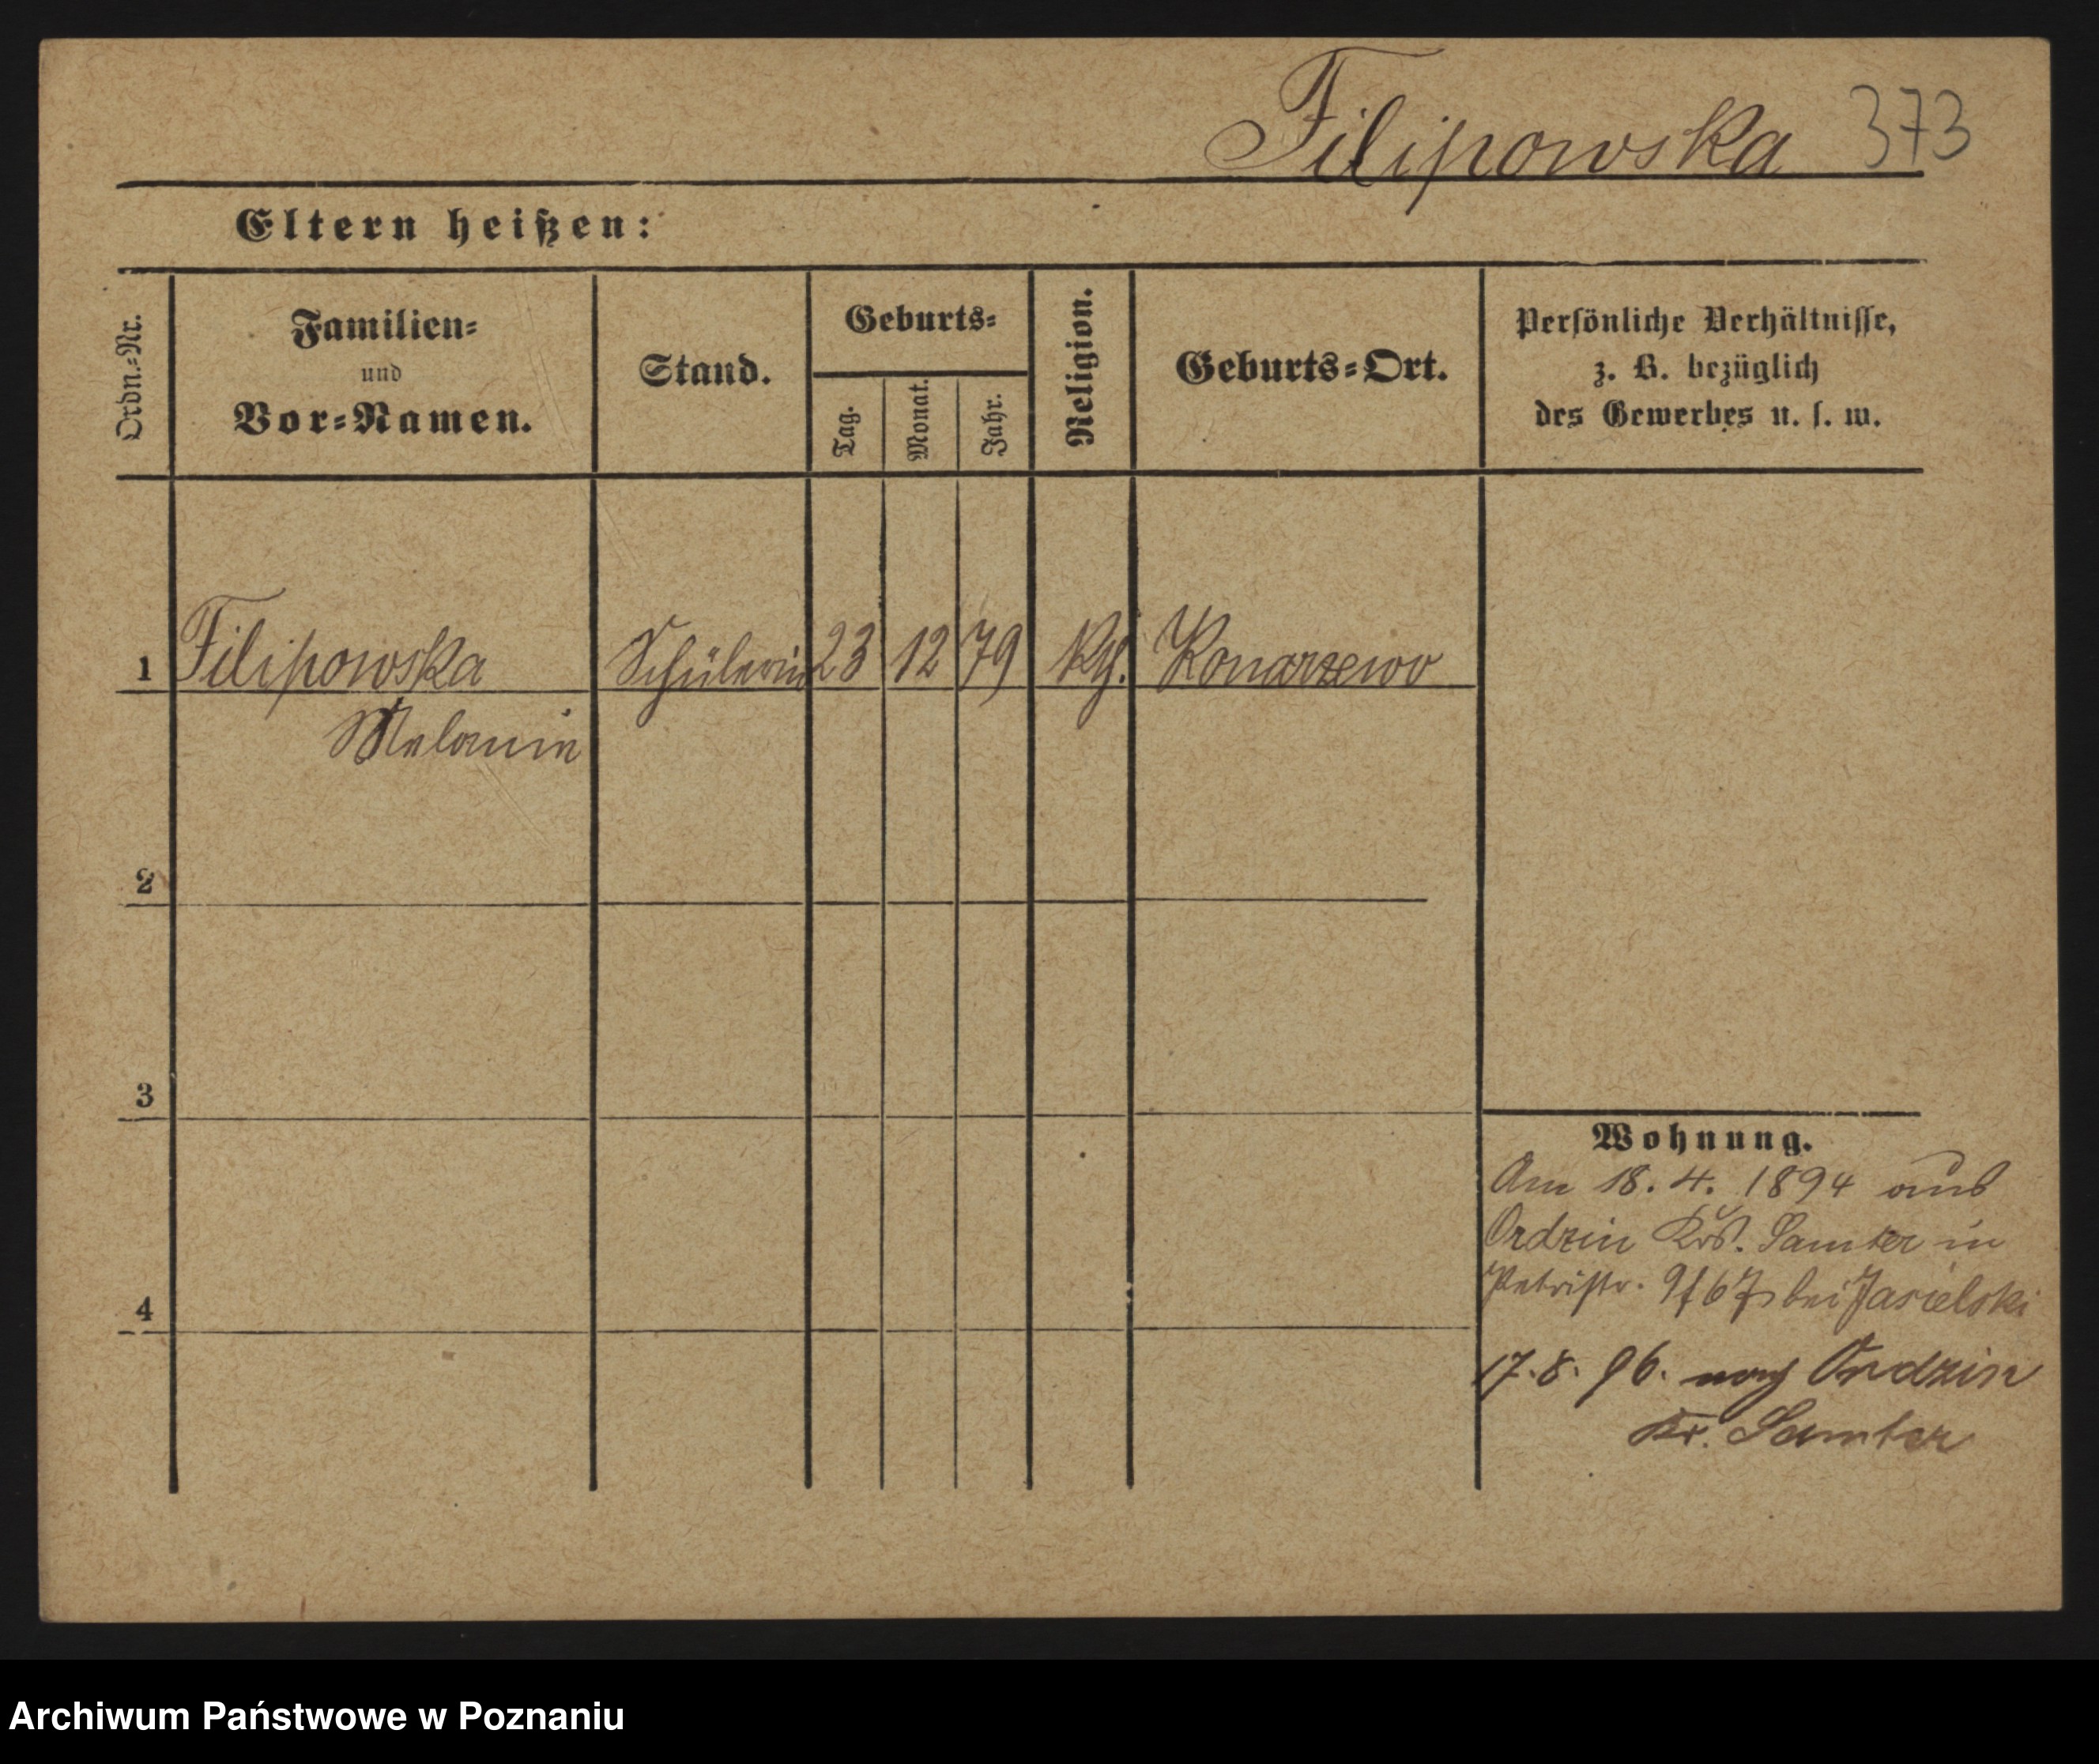 Filipowska 373
Eltern heißen:
Ordn.-Nr.
Familien-
und
Vor-Namen.
Stand.
Geburts-
Tag.
Monat.
Jahr.
Religion.
Geburts-Ort.
Persönliche Verhältnisse,
z. B. bezüglich
des Gewerbes u. s. w.
1 Filipowska Schülerin 23 12 79 Kth. Konarzewo
Melanie
2
3
4
Wohnung.
Am 18. 4. 1894 aus
Ordzin Krs. Samter in
Petristr. bei Jasielski
17. 8. 96. nach Ordzin
Kr. Samter
Archiwum Państwowe w Poznaniu